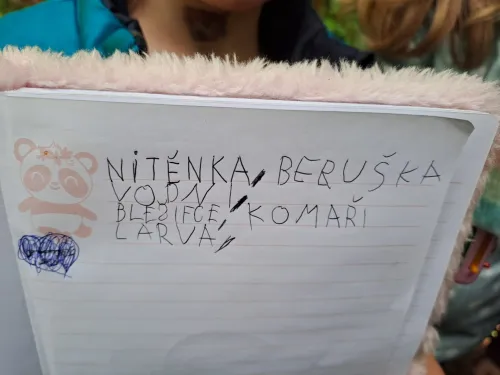 NITĚNKA, BERUŠKA
VODNÍ,
BLEŠIFCE, KOMAŘÍ
LARVA,